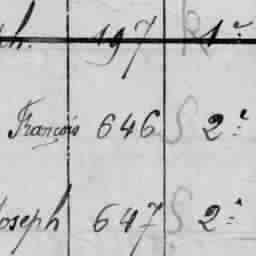 th. 197 R 1.ª
François 646 S 2.ª
Joseph 647 S 2.ª